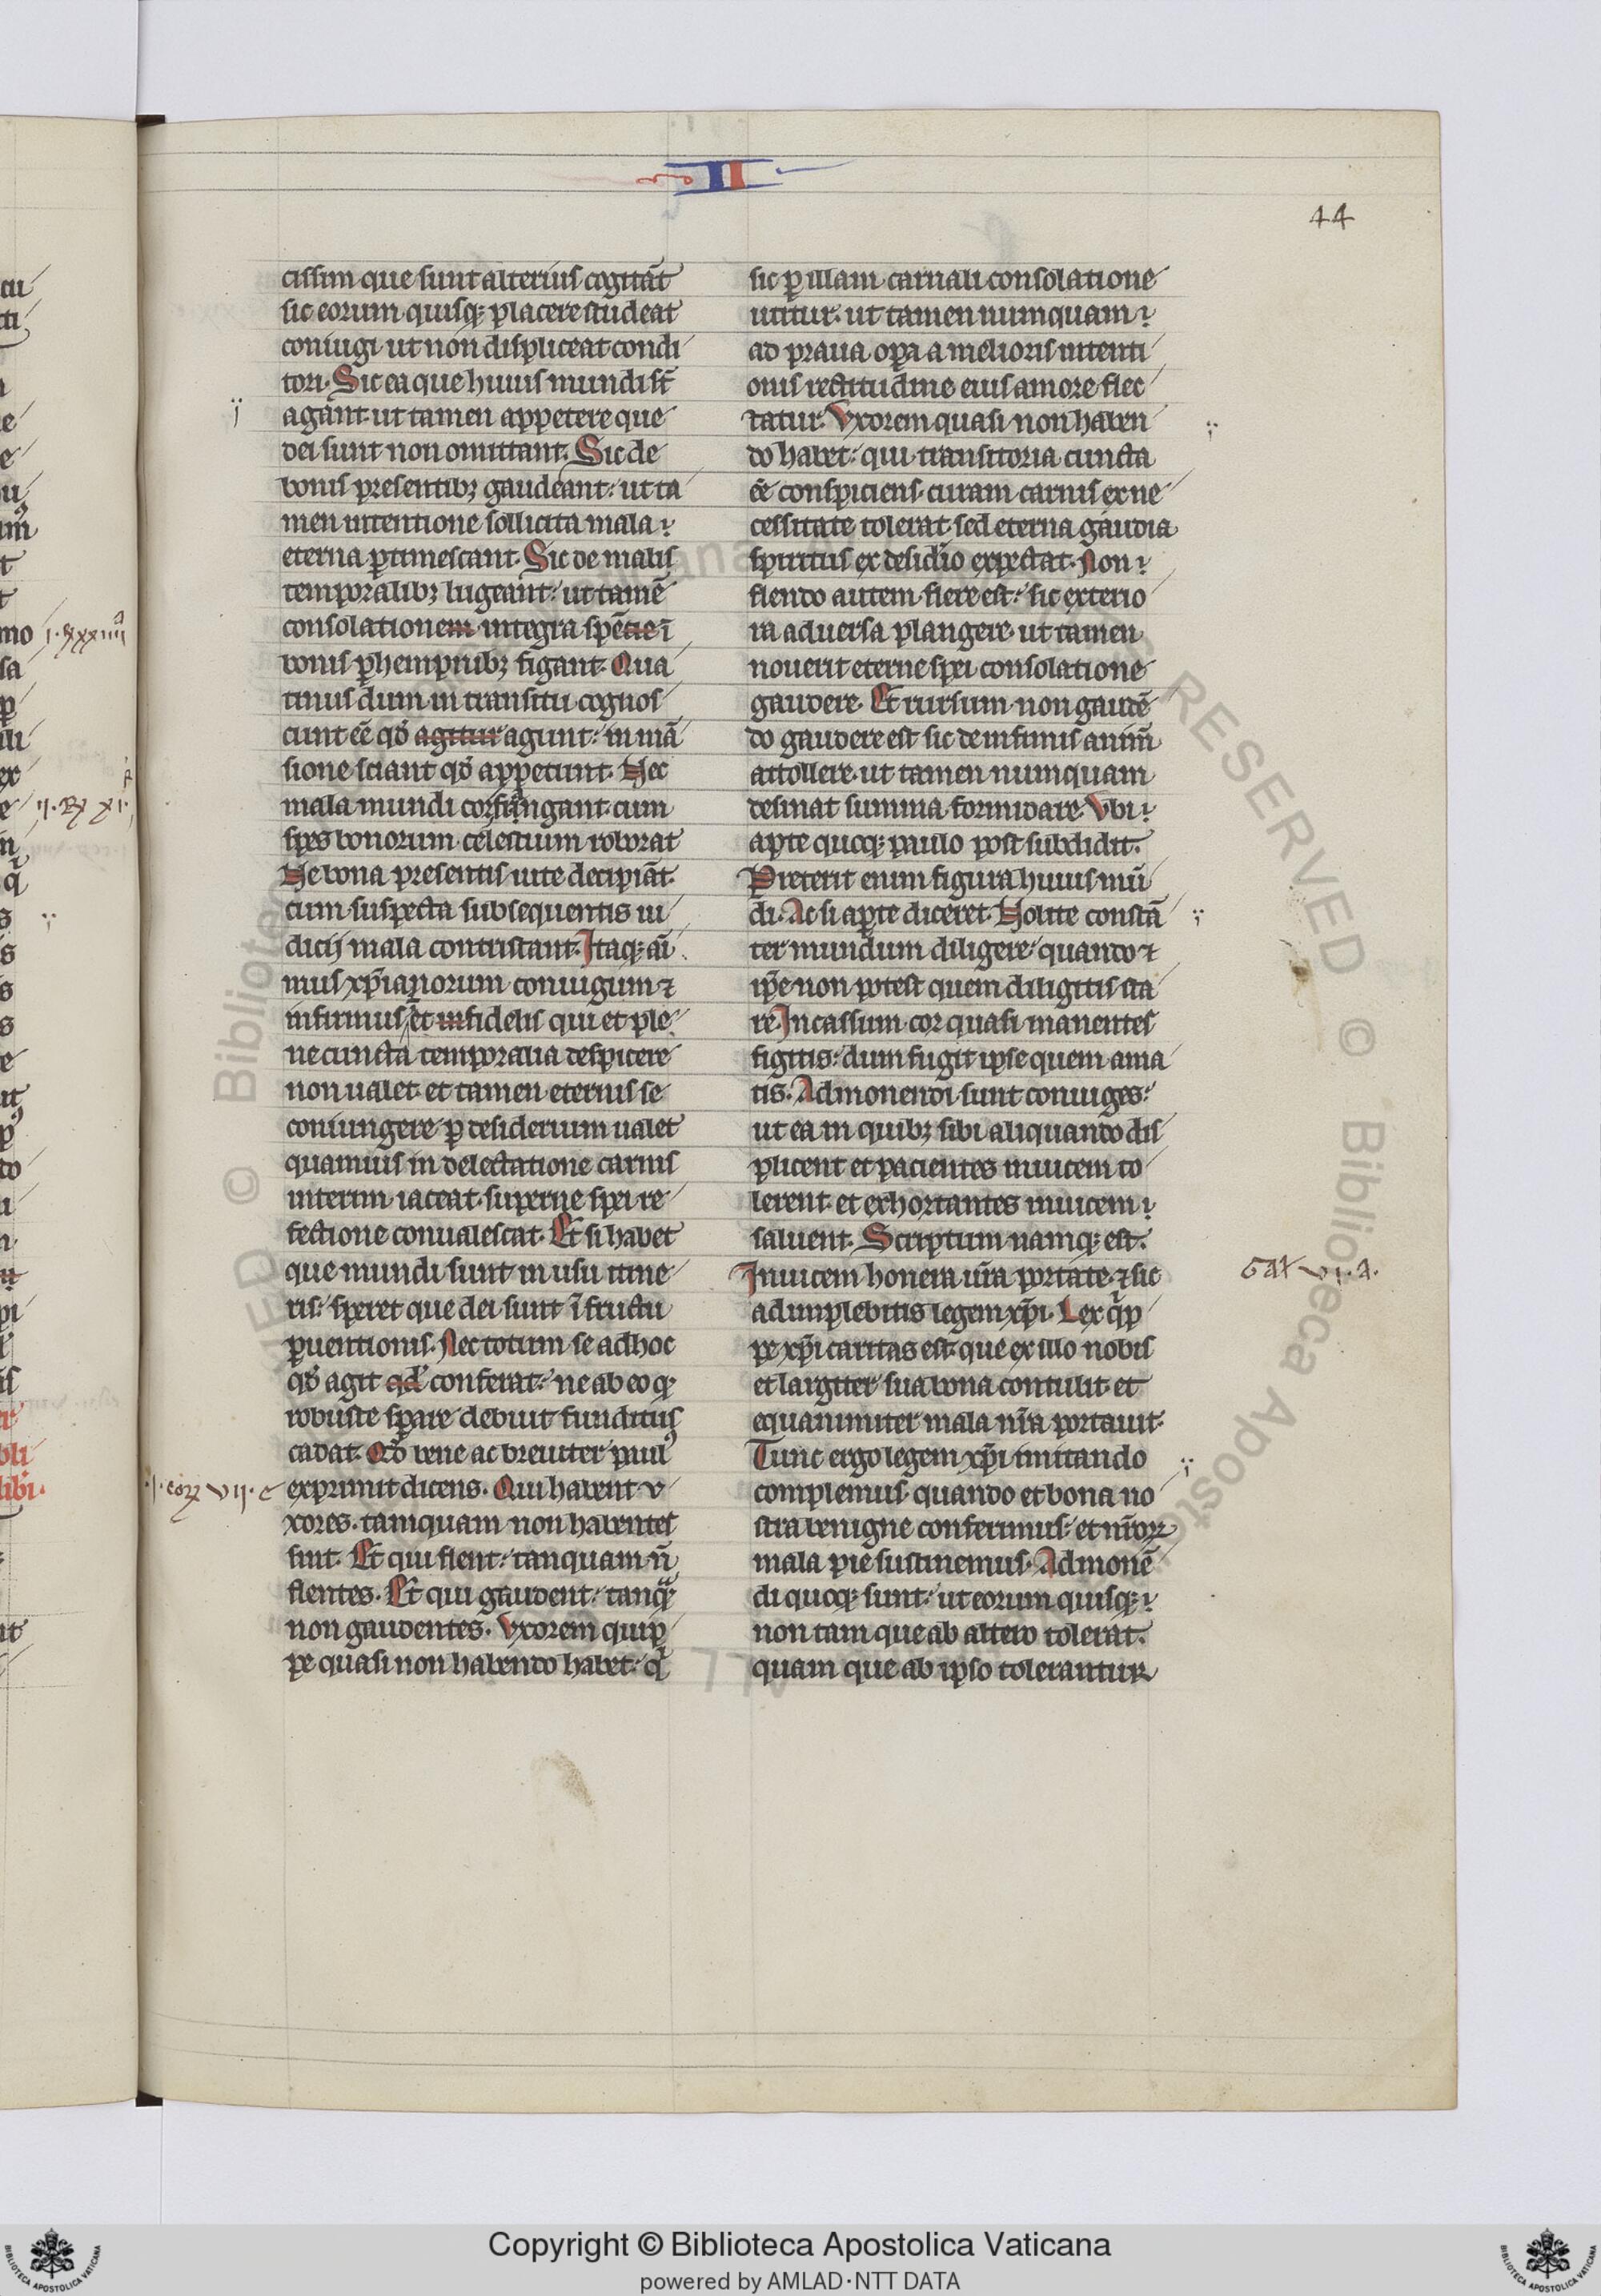 II
44
cissim que sunt alterius cogitāt
sic eorum quisq; placere studeat
coniugi ut non displiceat condi
tori. Sic ea que huius mundi st̄
agant ut tamen appetere que
dei sunt non omittant. Sic de
bonis presentibꝫ gaudeant: ut ta
men intentione sollicita mala
eterna ꝑtimescant. Sic de malis
temporalibꝫ lugeant: ut tamē
consolationem integra spē cie ī
bonis ꝑhempnibꝫ figant. Qua
tinus dum in transitu cognos
cunt eē qd̛ agitur agunt: in mā
sione sciant qd̛ appetunt. Nec
mala mundi cor frangant cum
spes bonorum celestium roborat
Ne bona presentis uite decipiāt.
cum suspecta subsequentis iu
dicij mala contristant. Itaq; ai
mus xp̄ianorum coniugum ⁊
infirmus et infidelis qui et ple
ne cuncta temporalia despicere
non ualet. et tamen eternis se
coniungere ꝑ desiderium ualet
quamuis in delectatione carnis
interim iaceat. superne spei re
fectione conualescat. Et si habet
que mundi sunt in usu itine
ris: speret que dei sunt ī fructu
ꝑuentionis. Nec totum se ad hoc
qd̛ agit qd̛ conferat: ne ab eo q;
robuste sꝑare debuit funditus
cadat. Qd̛ bene ac breuiter paulꝰ
.I. corꝝ VII. c
exprimit dicens. Qui habent v
xores. tamquam non habentes
sint. Et qui flent: tanquam n̄
flentes. Et qui gaudent: tanqᵃ̄
non gaudentes. Vxorem quip
pe quasi non habendo habet: qⁱ
sic ꝑ illam carnali consolatione
utitur. ut tamen numquam
ad praua oꝑa a melioris intenti
onis rectitudine eius amore flec
tatur. Vxorem quasi non haben
do habet: qui transitoria cuncta
eē conspiciens. curam carnis ex ne
cessitate tolerat. sed eterna gaudia
spiritus ex desidio expectat. Non
flendo autem flere est: sic exterio
ra aduersa plangere. ut tamen
nouerit eterne spei consolatione
gaudere. Et rursum non gaudē
do gaudere est sic de infimis animū
attollere. ut tamen numquam
desinat summa formidare. Vbi
apte quoq; paulo post subdidit.
Preterit enim figura huius mū
di. Ac si aꝑte diceret. Nolite constā
ter mundum diligere: quando ⁊
ip̄e non potest quem diligitis sta
re. Incassum cor quasi manentes
figitis: dum fugit ipse quem ama
tis. Admonendi sunt coniuges:
ut ea in quibꝫ sibi aliquando dis
plicent et pacientes inuicem to
lerent. et exhortantes inuicem
saluent. Scriptum namq; est.
Inuicem honera ur̄a portate. ⁊ sic
Gal VI. a.
adimplebitis legem xp̄i. Lex qⁱp
pe xp̄i caritas est. que ex illo nobis
et largiter sua bona contulit. et
equanimiter mala nr̄a portauit.
Tunc ergo legem xp̄i imitando
complemus. quando et bona no
stra benigne conferimus: et nr̄orꝝ
mala pie sustinemus. Admonē
di quoq; sunt: ut eorum quisq;
non tam que ab altero tolerat.
quam que ab ipso tolerantur
Copyright © Biblioteca Apostolica Vaticana
powered by AMLAD·NTT DATA